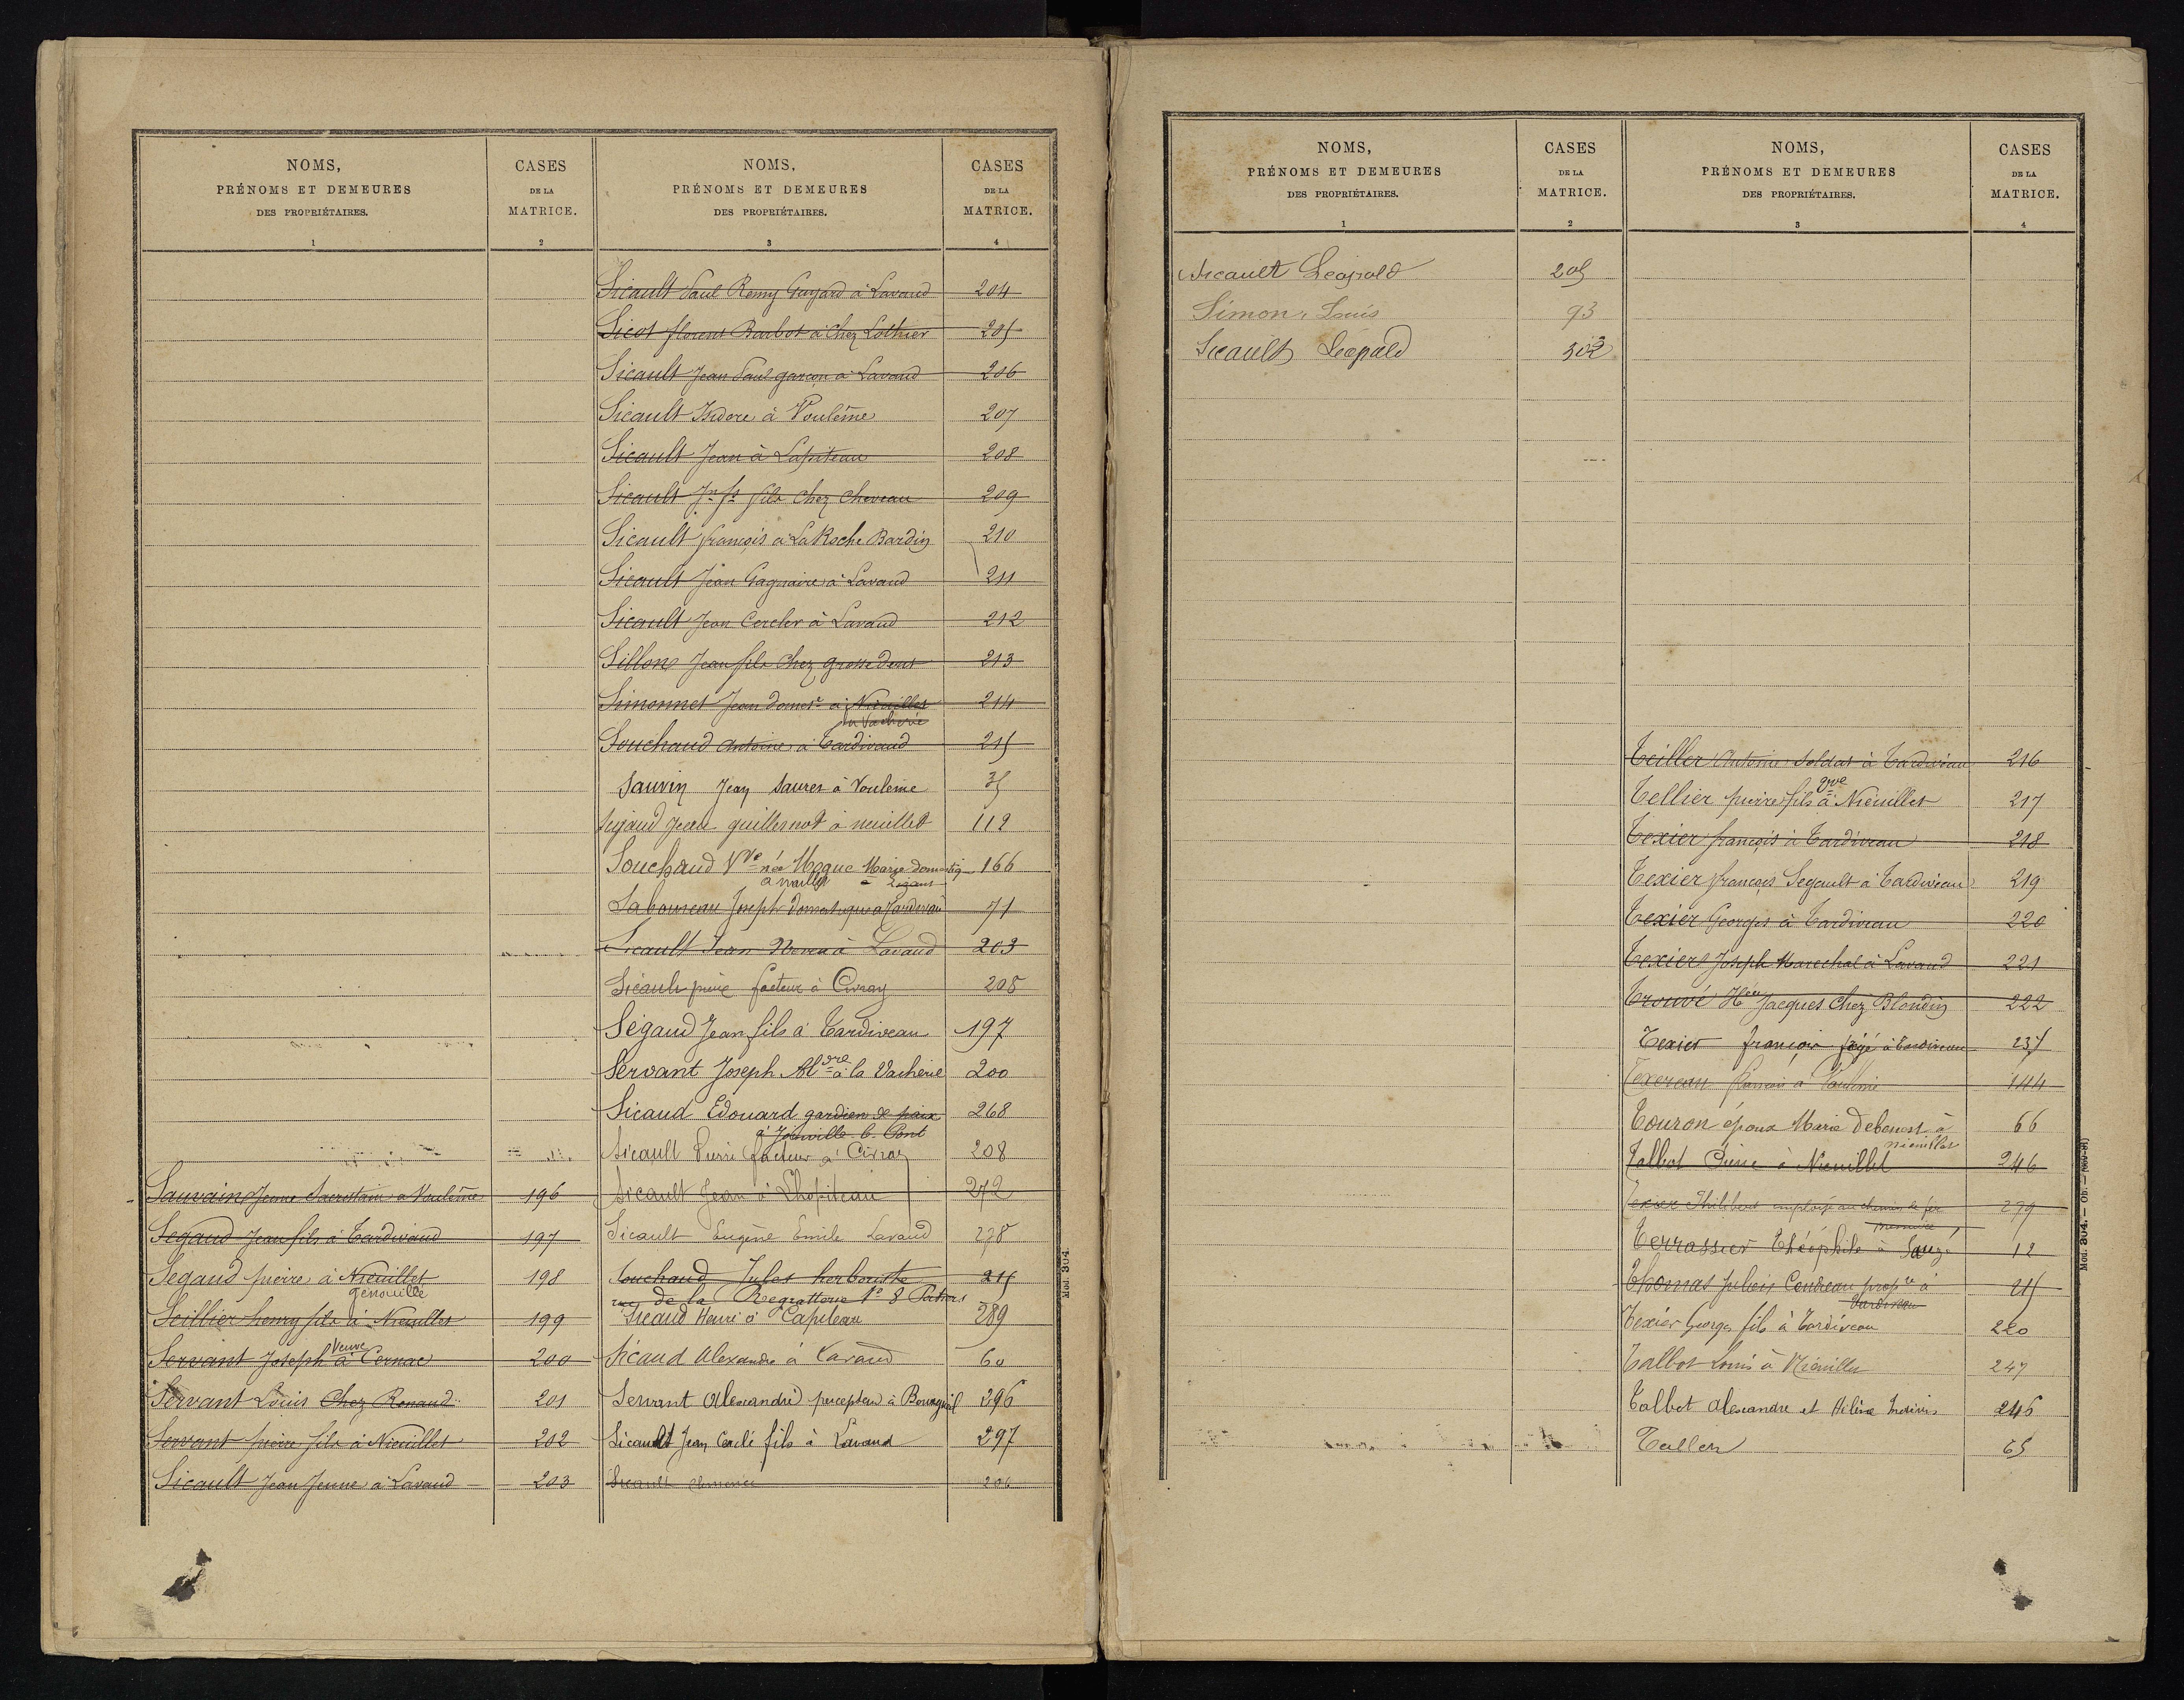 NOMS,
PRÉNOMS ET DEMEURES
DES PROPRIÉTAIRES.
1
CASES
DE LA
MATRICE.
2
Sauvain Jeune Sacristain à Voulême 196
Segaud Jean fils à Tardiveaud 197
Segaud pierre à Nieuillet 198
genouillé
Seillier henry fils à Nieuillet 199
Servant Joseph Veuve à Cernac 200
Servant Louis Chez Renaud 201
Servant pierre fils à Nieuillet 202
Sicault Jean Jeune à Lavaud 203
NOMS,
PRÉNOMS ET DEMEURES
DES PROPRIÉTAIRES.
3
CASES
DE LA
MATRICE.
4
Sicault Paul Remy Guyard à Lavaud 204
Sicot florent Barbot à Chez Lothier 205
Sicault Jean Paul garçon à Lavaud 206
Sicault Isidore à Voulême 207
Sicault Jean à Lapiteau 208
Sicault Jn fs fils chez Cheveau 209
Sicault françois à La Roche Bardin 210
Sicault Jean Gagnaire à Lavaud 211
Sicault Jean Cercler à Lavaud 212
Sillon Jean fils Chez grosse dent 213
Simonnet Jean domest. à Nieuillet 214
la Vacherie
Souchaud Antoine à Tardivaud 215
Sauvin Jean Saures à Voulême 35
Segaud Jean guillemot à neuillet 112
Souchaud Vve née Moque Marie domestiq 166
à Lizant
Laboureau Joseph Domestique à Tardiveau 71
Sicault Jean Neveu à Lavaud 203
Sicault pierre facteur à Civray 208
Ségaud Jean fils à Tardiveau 197
Servant Joseph Aldre à la Vacherie 200
Sicaud Edouard gardien de paix 268
à Joinville le Pont
Sicault Pierre facteur à Civray 208
Sicault Jean à Lhopiteau 272
Sicault Eugène Emile Lavaud 278
Souchaud Jules herboriste 215
rue de la Regratterie No 8 Poitiers
Sicaud Henri à Lapiteau 289
Sicaud Alexandre à Lavaud 60
Servant Alexandre percepteur à Bourgueil 296
Sicault Jean Cerclé fils à Lavaud 297
Sicault Clémence 206
Mod. 304.
NOMS,
PRÉNOMS ET DEMEURES
DES PROPRIÉTAIRES.
1
CASES
DE LA
MATRICE.
2
Sicault Léopold 205
Simon Louis 93
Sicault Léopold 302
NOMS,
PRÉNOMS ET DEMEURES
DES PROPRIÉTAIRES.
3
CASES
DE LA
MATRICE.
4
Teiller Antoine Soldat à Tardiveau 216
Tellier pierre fils gve à Nieuillet 217
Texier françois à Tardiveau 218
Texier françois Segault à Tardiveau 219
Texier Georges à Tardiveau 220
Texier Joseph Marechal à Lavaud 221
Trouvé Hier Jacques Chez Blondin 222
Texier françois à Tardiveau 237
Texereau francois à Voulême 144
Touron époux Marie Debenest à 66
nieuillet
Talbot Pierre à Nieuillet 246
Texier Philibert employé au chemin de fer 279
Terrassier Théophile à Sauzé 12
Thomas julien Coudreau propre à 215
Tardiveau
Texier Georges fils à Tardiveau 220
Talbot Louis à Nieuillet 247
Talbot Alexandre et Hélène Indivis 246
Tallen 65
Mod. 304. — Ob. —